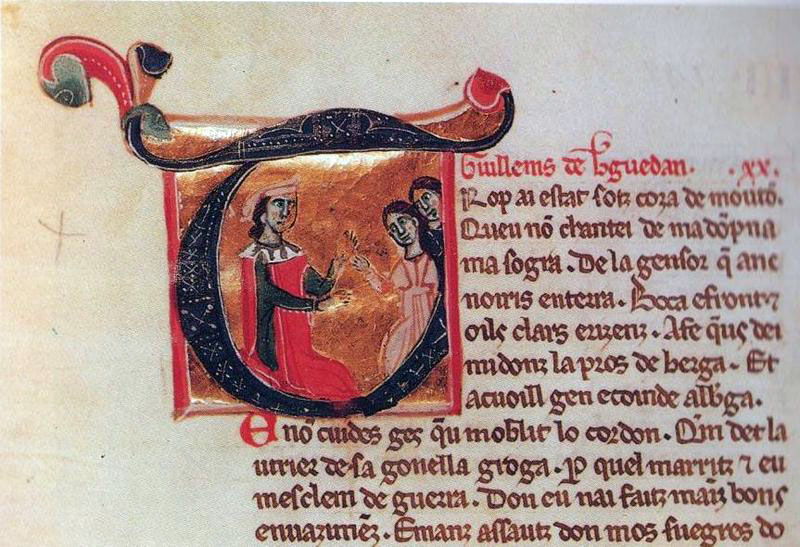 Guillems de b͛guedan. .xx.
Rop ai estat sotz coza de moutō.
Queu nō chantei de ma dōpna
ma sogra. De la gensor q̄ anc
noiris en terra. Boca e front ⁊
oils clars e rizenz. A fe q̄us dei
midonz la pros de berga. Et
acuoill gen e coinde alb͛ga.
E nō cuides ges q̄u moblit lo cordon. Qm det la
utrier de sa gonella groga. P quel marritz ⁊ eu
mesclem de guerra. Don eu nai faitz bons
assautz don mos suegres do